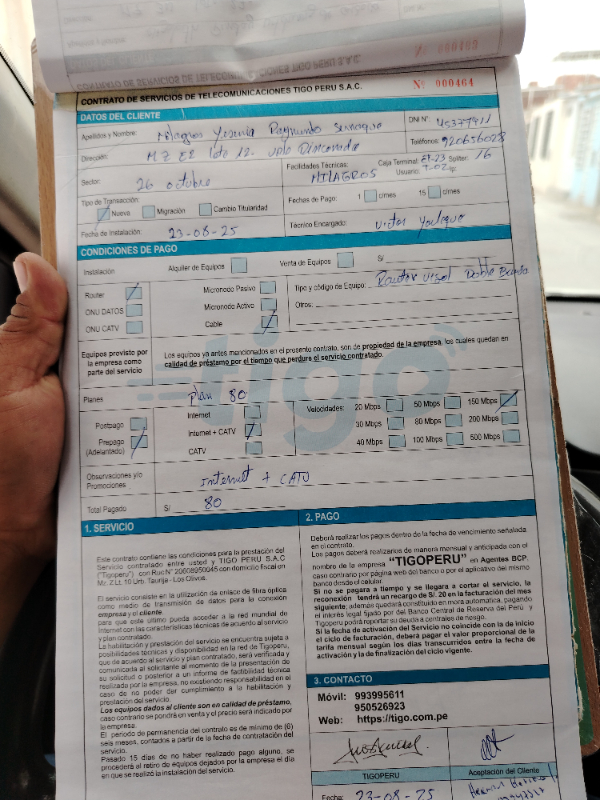 Nº 000403
CONTRATO DE SERVICIOS DE TELECOMUNICACIONES TIGO PERU S.A.C.
Nº 000404
DATOS DEL CLIENTE
Apellidos y Nombre: Milagros Yesenia Raymundo
DNI Nº:
Dirección: MZ EE lote 12.
Teléfonos: 920656028
Sector: 26 octubre
Facilidades Técnicas: Caja Terminal: Spliter: 16
MILAGROS Usuario:
Tipo de Transacción:
Nueva Migración Cambio Titularidad
Fechas de Pago: 1 c/mes 15 c/mes
Fecha de Instalación: 23-08-25
Técnico Encargado: Victor
CONDICIONES DE PAGO
Instalación Alquiler de Equipos Venta de Equipos S/
Router Micronodo Pasivo Tipo y código de Equipo: Router Doble Banda
ONU DATOS Micronodo Activo Otros:
ONU CATV Cable
Equipos provisto por la empresa como parte del servicio
Los equipos ya antes mencionados en el presente contrato, son de propiedad de la empresa, los cuales quedan en
calidad de préstamo por el tiempo que perdure el servicio contratado.
tigo
Planes Plan 80
Postpago
Prepago
(Adelantado)
Internet
Internet + CATV
CATV
Velocidades: 20 Mbps 50 Mbps 150 Mbps
30 Mbps 80 Mbps 200 Mbps
40 Mbps 100 Mbps 500 Mbps
Observaciones y/o
Promociones Internet + CATV
Total Pagado S/ 80
1. SERVICIO
Este contrato contiene las condiciones para la prestación del
Servicio contratado entre usted y TIGO PERU S.A.C
("Tigoperu") con Ruc N° 20608950945 con domicilio fiscal en
Mz. Z Lt. 10 Urb. Taurija - Los Olivos.
El servicio consiste en la utilización de enlace de fibra óptica
como medio de transmisión de datos para la conexión
empresa y el cliente
para que este último pueda acceder a la red mundial de
Internet con las características técnicas de acuerdo al servicio
y plan contratado.
La habilitación y prestación del servicio se encuentra sujeta a
posibilidades técnicas y disponibilidad en la red de Tigoperu,
que de acuerdo al servicio y plan contratado, será verificada y
comunicada al solicitante al momento de la presentación de
su solicitud o posterior a un informe de factibilidad técnica
realizada por la empresa, no existiendo responsabilidad en el
caso de no poder dar cumplimiento a la habilitación y
prestación del servicio.
Los equipos dados al cliente son en calidad de préstamo,
caso contrario se pondrá en venta y el precio será indicado por
la empresa.
El período de permanencia del contrato es de mínimo de (6)
seis meses, contados a partir de la fecha de contratación del
servicio.
Pasado 15 días de no haber realizado pago alguno, se
procederá al retiro de equipos dejados por la empresa el día
en que se realizó la instalación del servicio.
2. PAGO
Deberá realizar los pagos dentro de la fecha de vencimiento señalada
en el contrato.
Los pagos deberá realizarlos de manera mensual y anticipada con el
nombre de la empresa "TIGOPERU" en Agentes BCP,
caso contrario por página web del banco o por el aplicativo del mismo
banco desde el celular.
Si no se pagara a tiempo y se llegara a cortar el servicio, la
reconexión tendrá un recargo de S/. 20 en la facturación del mes
siguiente, además quedará constituido en mora automática, pagando
el interés legal fijado por el Banco Central de Reserva del Perú y
Tigoperu podrá reportar su deuda a centrales de riesgo.
Si la fecha de activación del Servicio no coincide con la de inicio
del ciclo de facturación, deberá pagar el valor proporcional de la
tarifa mensual según los días transcurridos entre la fecha de
activación y la de finalización del ciclo vigente.
3. CONTACTO
Móvil: 993995611
950526923
Web: https://tigo.com.pe
TIGOPERU
Aceptación del Cliente
Fecha: 23-08-25